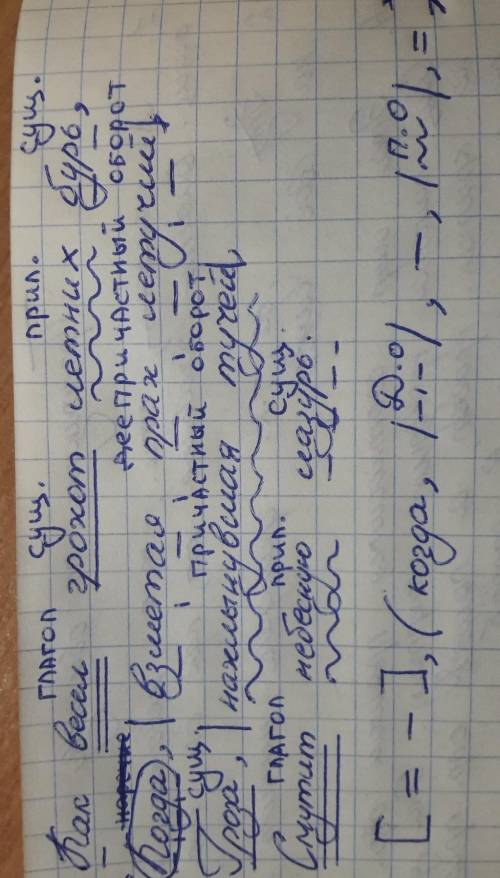 глагол сущ. прил. сущ.
Как весел грохот летних бурь,
наречие деепричастный оборот
Когда, |взметая прах летучий|,
сущ. причастный оборот
Гроза, |нахлынувшая тучей|,
глагол прил. сущ.
Смутит небесную лазурь.
[= -], (когда, |Д.О|, -, |П.О|, =)